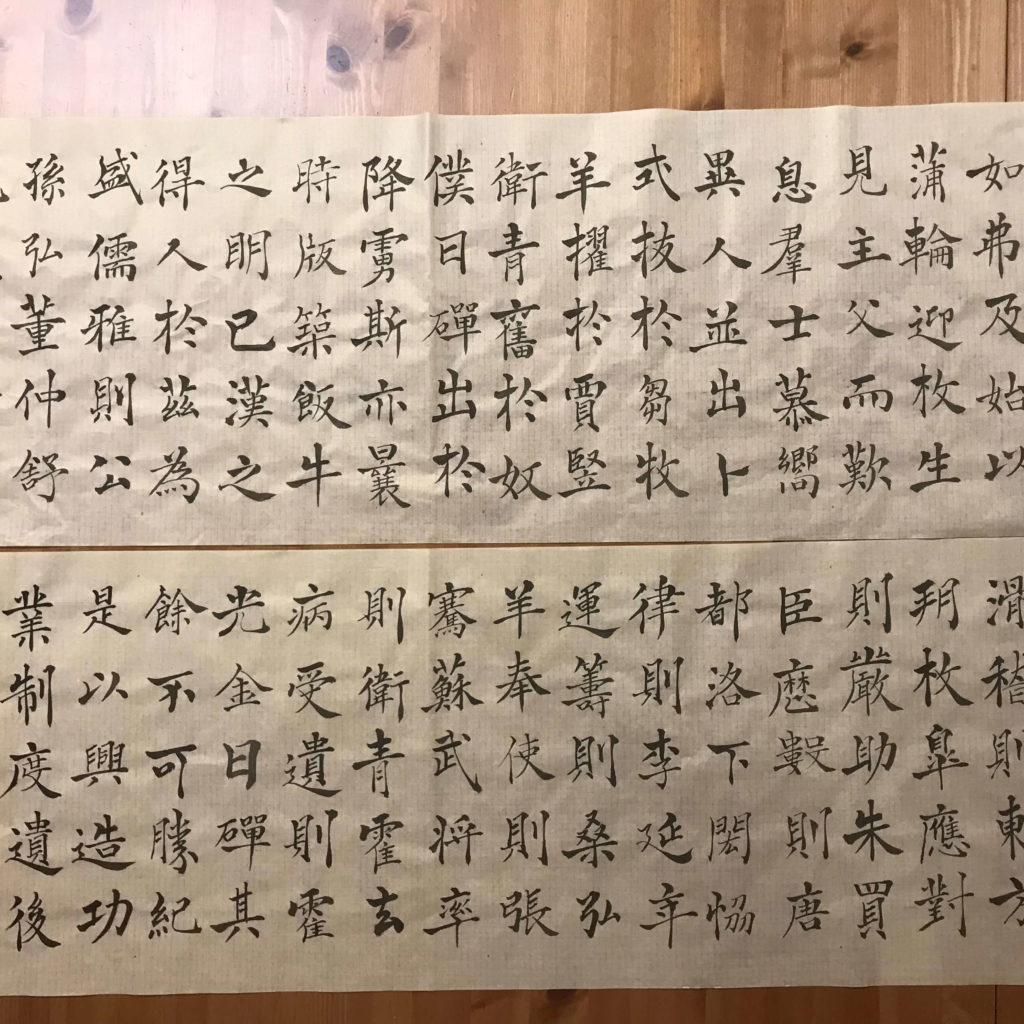 如弗及始以
蒲輪迎枚生
見主父而歎
息羣士慕嚮
異人並出卜
式拔於芻牧
羊擢於賈豎
衛青奮於奴
僕日磾出於
降虜斯亦曩
時版築飯牛
之明已漢之
得人於茲為
盛儒雅則公
孫弘董仲舒
滑稽則東方
朔枚皐應對
則嚴助朱買
臣歷數則唐
都洛下閎恊
律則李延年
運籌則桑弘
羊奉使則張
騫蘇武將率
則衛青霍去
病受遺則霍
光金日磾其
餘不可勝紀
是以興造功
業制度遺後